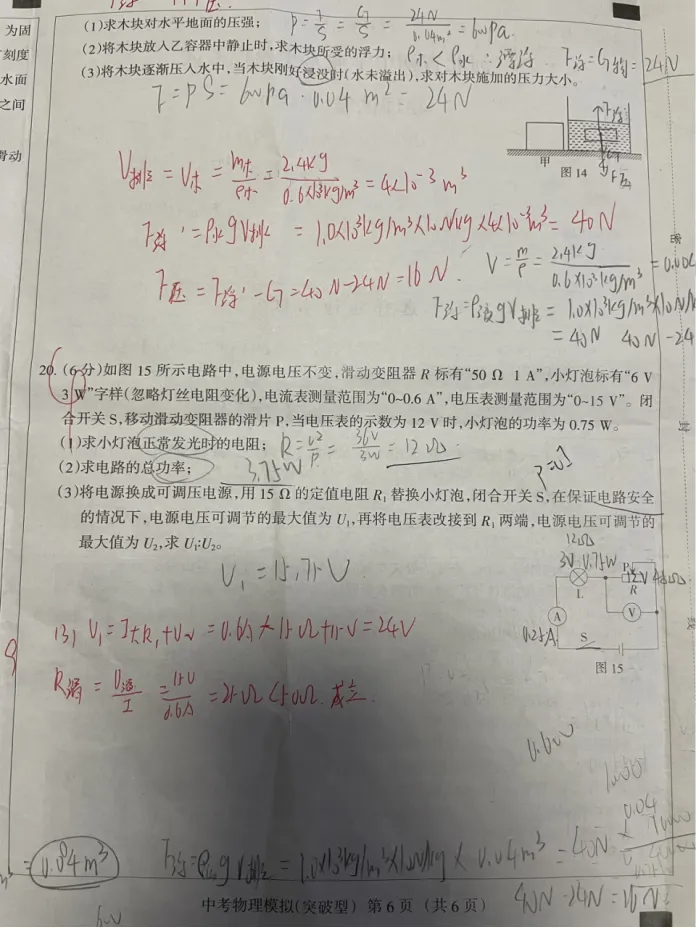 为固
刻度
水面
之间
滑动
(1)求木块对水平地面的压强; P=F/S=G/S=24N/0.04m²=600pa.
(2)将木块放入乙容器中静止时,求木块所受的浮力; ρ木<ρ水 ∴漂浮 F浮=G物=24N
(3)将木块逐渐压入水中,当木块刚好浸没时(水未溢出),求对木块施加的压力大小。
F=PS=600pa·0.04m²=24N
甲
图 14
V排=V木=m木/ρ木=2.4kg/0.6×10³kg/m³=4×10⁻³m³
F浮'=ρ水gV排=1.0×10³kg/m³×10N/kg×4×10⁻³m³=40N
F压=F浮'-G=40N-24N=16N.
V=m/ρ=2.4kg/0.6×10³kg/m³=0.004
F浮=ρ液gV排=1.0×10³kg/m³×10N/k
=40N 40N-24
20.(6分)如图 15 所示电路中,电源电压不变,滑动变阻器 R 标有“50 Ω 1 A”,小灯泡标有“6 V
3 W”字样(忽略灯丝电阻变化),电流表测量范围为“0~0.6 A”,电压表测量范围为“0~15 V”。闭
合开关 S,移动滑动变阻器的滑片 P,当电压表的示数为 12 V 时,小灯泡的功率为 0.75 W。
(1)求小灯泡正常发光时的电阻; R=U²/P=36V/3W=12Ω.
(2)求电路的总功率; 3.75W
P=UI
(3)将电源换成可调压电源,用 15 Ω 的定值电阻 R₁ 替换小灯泡,闭合开关 S,在保证电路安全
的情况下,电源电压可调节的最大值为 U₁,再将电压表改接到 R₁ 两端,电源电压可调节的
最大值为 U₂,求 U₁∶U₂。
U₁=15.75V
12Ω
3V 0.75W
P
12V 48Ω
L
R
A
V
0.25A
S
图 15
(3) U₁=I大R₁+UV=0.6A×15Ω+15V=24V
R滑=U滑/I=15V/0.6A=25Ω<50Ω.成立.
密
封
0.600
0.04
1000
0.04m³
F浮=ρ水gV排=1.0×10³kg/m³×10N/kg×0.04m³=40N
40N-24N=16N
中考物理模拟(突破型) 第 6 页 (共 6 页)
600